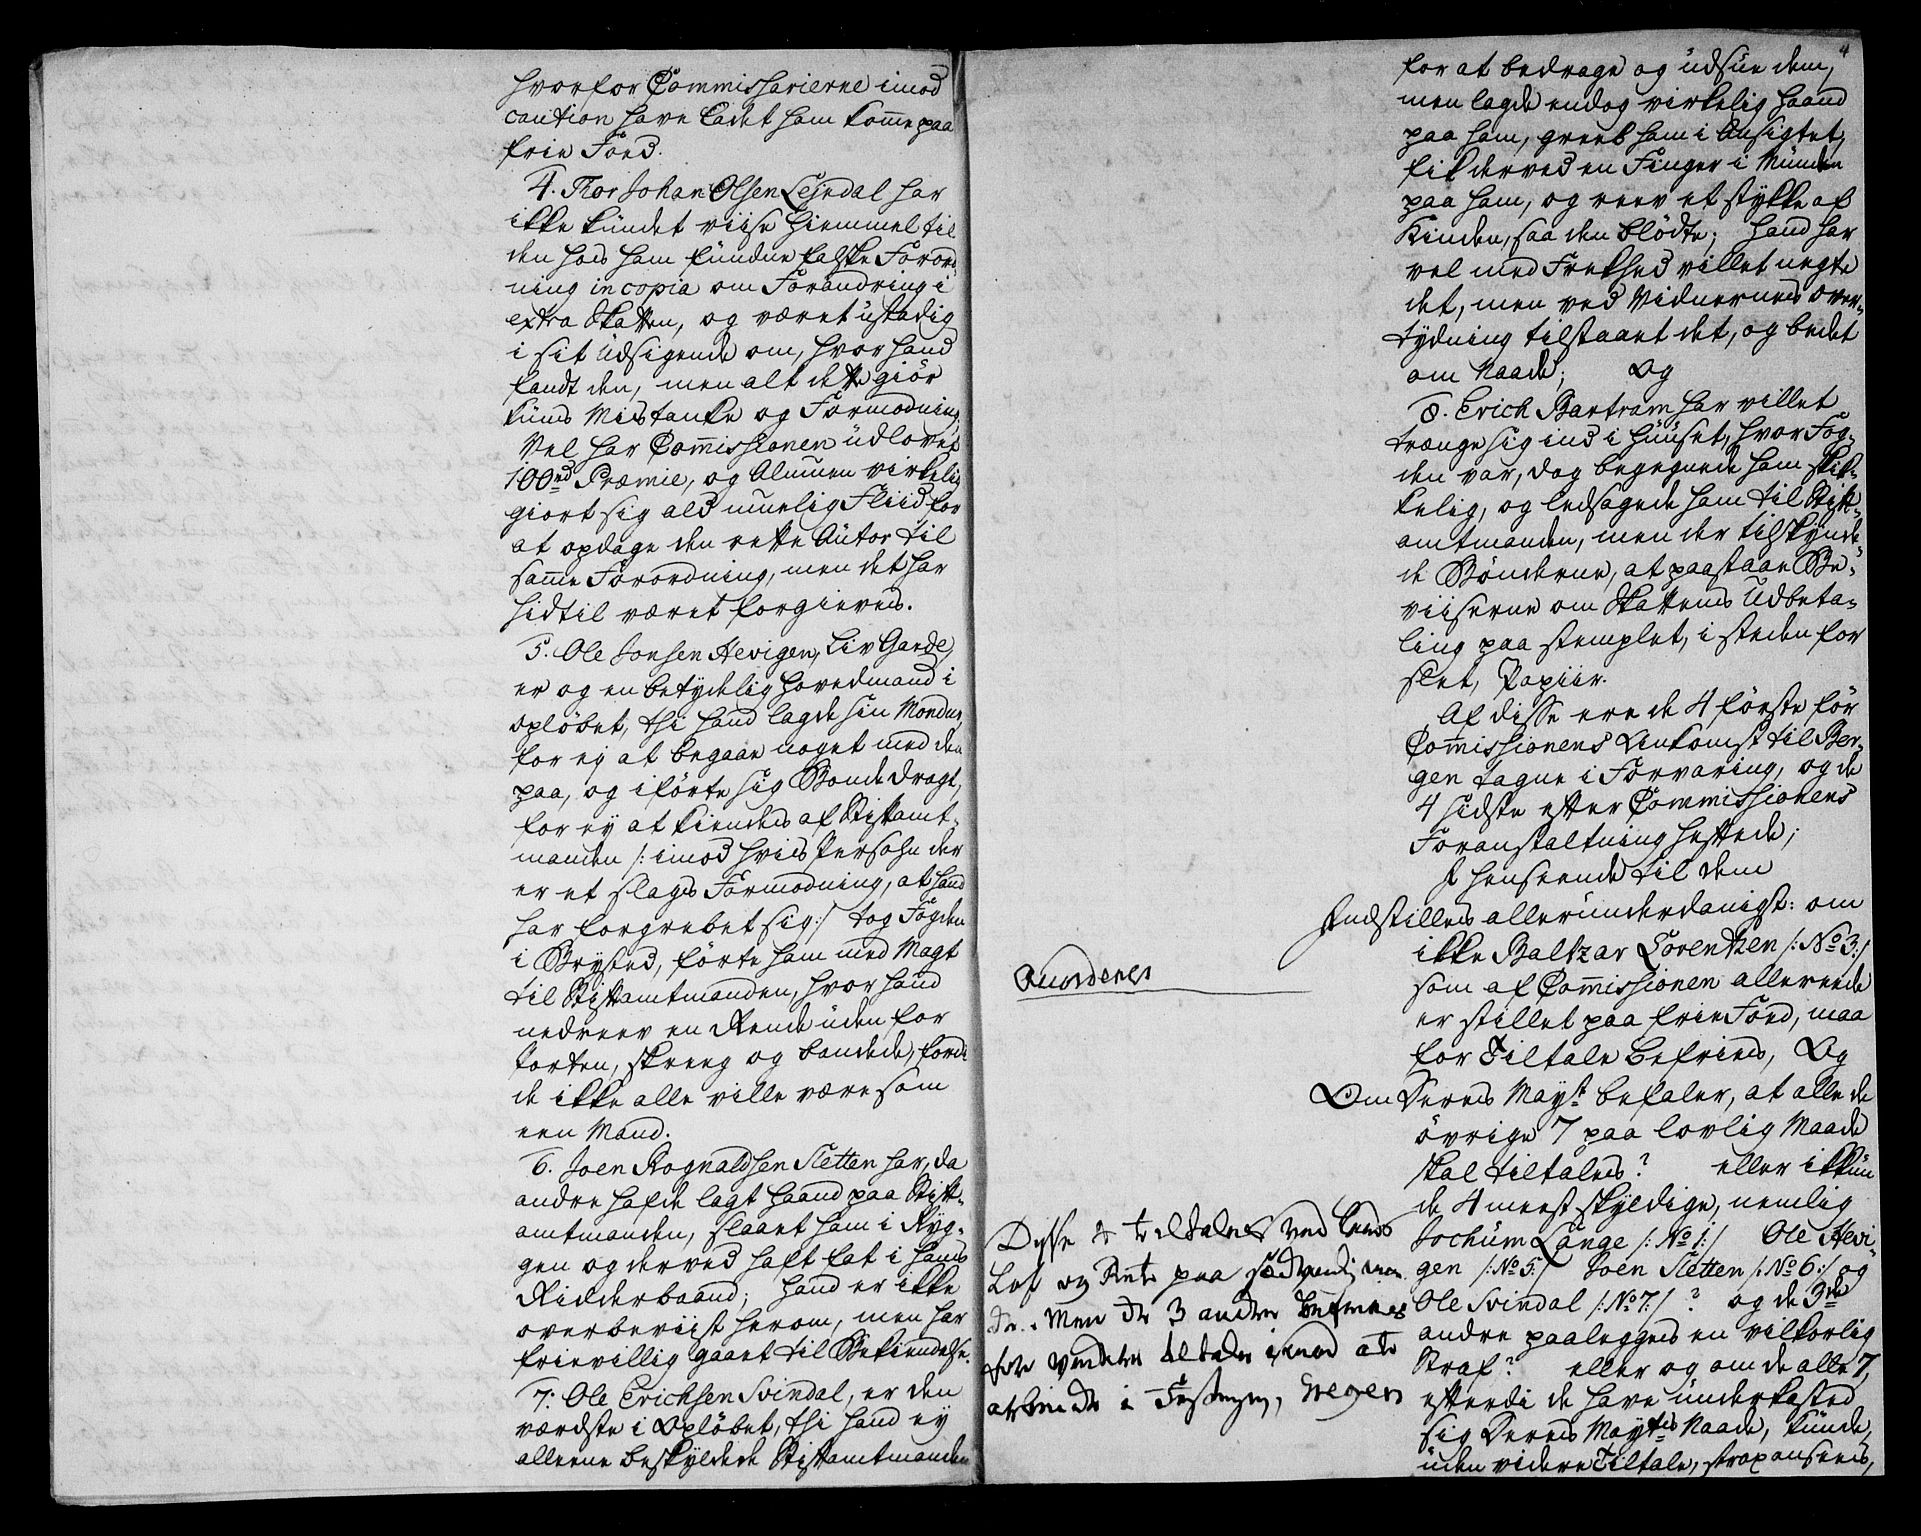 hvorfor Commissarierne imod
caution have ladet ham komme paa
frie Foed.
4. Thor Johan Olsen Lejrdal har
ikke kundet viise Hiemmel til
den hos ham fundne falske Forord-
ning in copia om Forandring i
extra Skatten, og været ustadig
i sit Udsigende om, hvor hand
fandt den, men alt dette giör
kuns Mistanke og Formodning.
Vel har Commissionen udlovet
100 rd Præmie, og Almuen virkelig
giort sig ald muelig Fliid for
at opdage den rette Autor til
samme Forordning, men det har
hidtil været forgieves.
5. Ole Jonsen Hevigen, Liv Garde,
er og en betydelig Hovedmand i
oplöbet, thi hand lagde sin Mondur,
for ej at begaae noget med den
paa, og iförte sig Bonde dragt,
for ej at kiendes af Stiftamt-
manden /: imod hvis Persohn der
er et slags Formodning, at hand
har forgrebet sig :/ tog Fogden
i Brysted, förte ham med Magt
til Stiftamtmanden, hvor hand
nedreev en Rende uden for
Porten, skreeg og bandede, fordi
de ikke alle ville være som
een Mand.
6. Joen Rognaldsen Sletten har, da
andre hafde lagt haand paa Stift-
amtmanden, slaaet ham i Ryg-
gen og derved haft fat i hans
Ridderbaand; hand er ikke
overbeviist herom, men har
frievillig gaaet til Bekiendelse.
7. Ole Erichsen Svindal, er den
værdste i Oplöbet, thi hand ej
alleene beskyldede Stiftamtmanden
4
for at bedrage og udsue dem,
men lagde endog virkelig haand
paa ham, greeb ham i Ansigtet,
fik derved en Finger i Munden
paa ham, og reev et stykke af
Kinden, saa den blödte; hand har
vel med Frekhed villet negte
det, men ved Vidnernes over-
tydning tilstaaet det, og bedet
om Naade; Og
8. Erich Bartram har villet
trænge sig ind i Huuset, hvor Fog-
den var, dog begegnede ham skik-
kelig, og ledsagede ham til Stift-
amtmanden, men der tilskynde-
de Bönderne, at paastaae Be-
viiserne om Skattens Udbeta-
ling paa stemplet, i steden for
slet, Papiir.
Af disse ere de 4 förste för
Commissionens Ankomst til Ber-
gen tagne i Forvaring, og de
4 sidste efter Commissionens
Foranstaltning heftede;
I henseende til dem
Indstilles allerunderdanigst: om
ikke Baltzar Lorentzen /: No 3 :/
som af Commissionen allereede
er stillet paa frie Foed, maa
for Tiltale befries, Og
Om Deres Mayst befaler, at alle de
övrige 7 paa lovlig Maade
skal tiltales? eller ikkun
de 4 meest skyldige, nemlig
Jochum Lange /: No 1 :/ Ole Hevi-
gen /: No 5 :/ Joen Sletten /: No 6 :/ og
Ole Svindal /: No 7 :/ ? og de 3de
andre paalegges en vilkorlig
Straf? eller og om de alle 7,
efterdi de have underkasted
sig Deres Maytts Naade, kunde,
uden videre Tiltale, strax ansees,
Anordenes
Disse 4 tiltales ved Lands
Lov og Ret paa sædvanlig maa-
de. Men de 3 andre befries
for videre tiltale imod at
arbeide i Festningen,